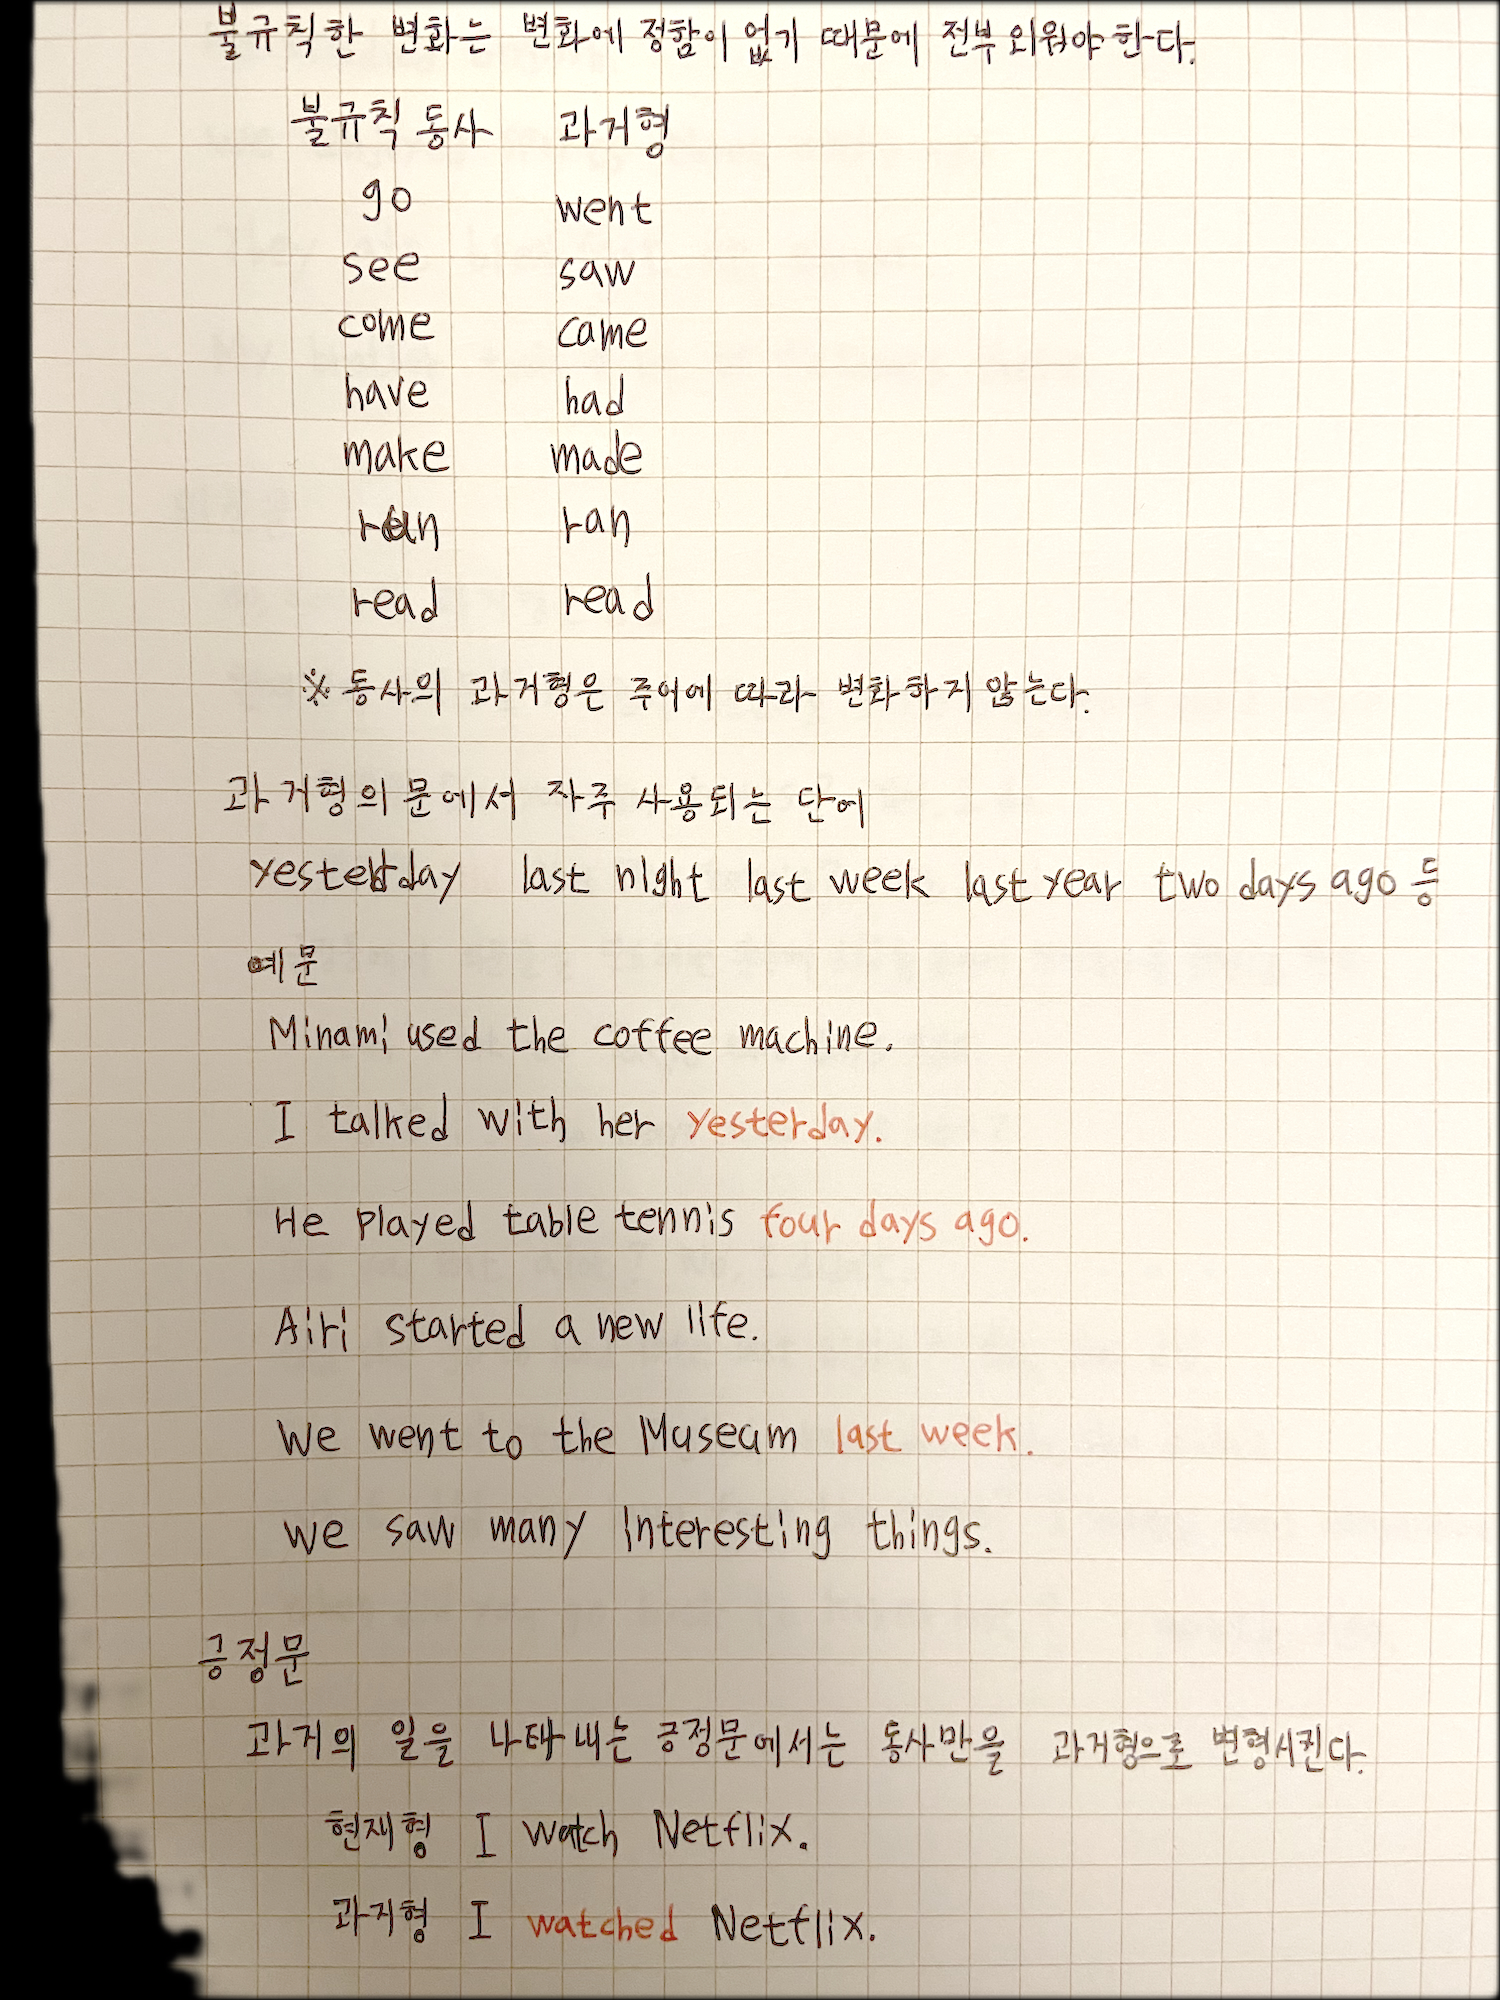 불규칙한 변화는 변화에 정함이 없기 때문에 전부 외워야 한다.
불규칙 동사 과거형
go went
see saw
come came
have had
make made
run ran
read read
※ 동사의 과거형은 주어에 따라 변화하지 않는다.
과거형의 문에서 자주 사용되는 단어
yesterday last night last week last year two days ago 등
예문
Minami used the coffee machine.
I talked with her yesterday.
He played table tennis four days ago.
Airi started a new life.
We went to the Museum last week.
We saw many interesting things.
긍정문
과거의 일을 나타내는 긍정문에서는 동사만을 과거형으로 변형시킨다.
현재형 I watch Netflix.
과거형 I watched Netflix.